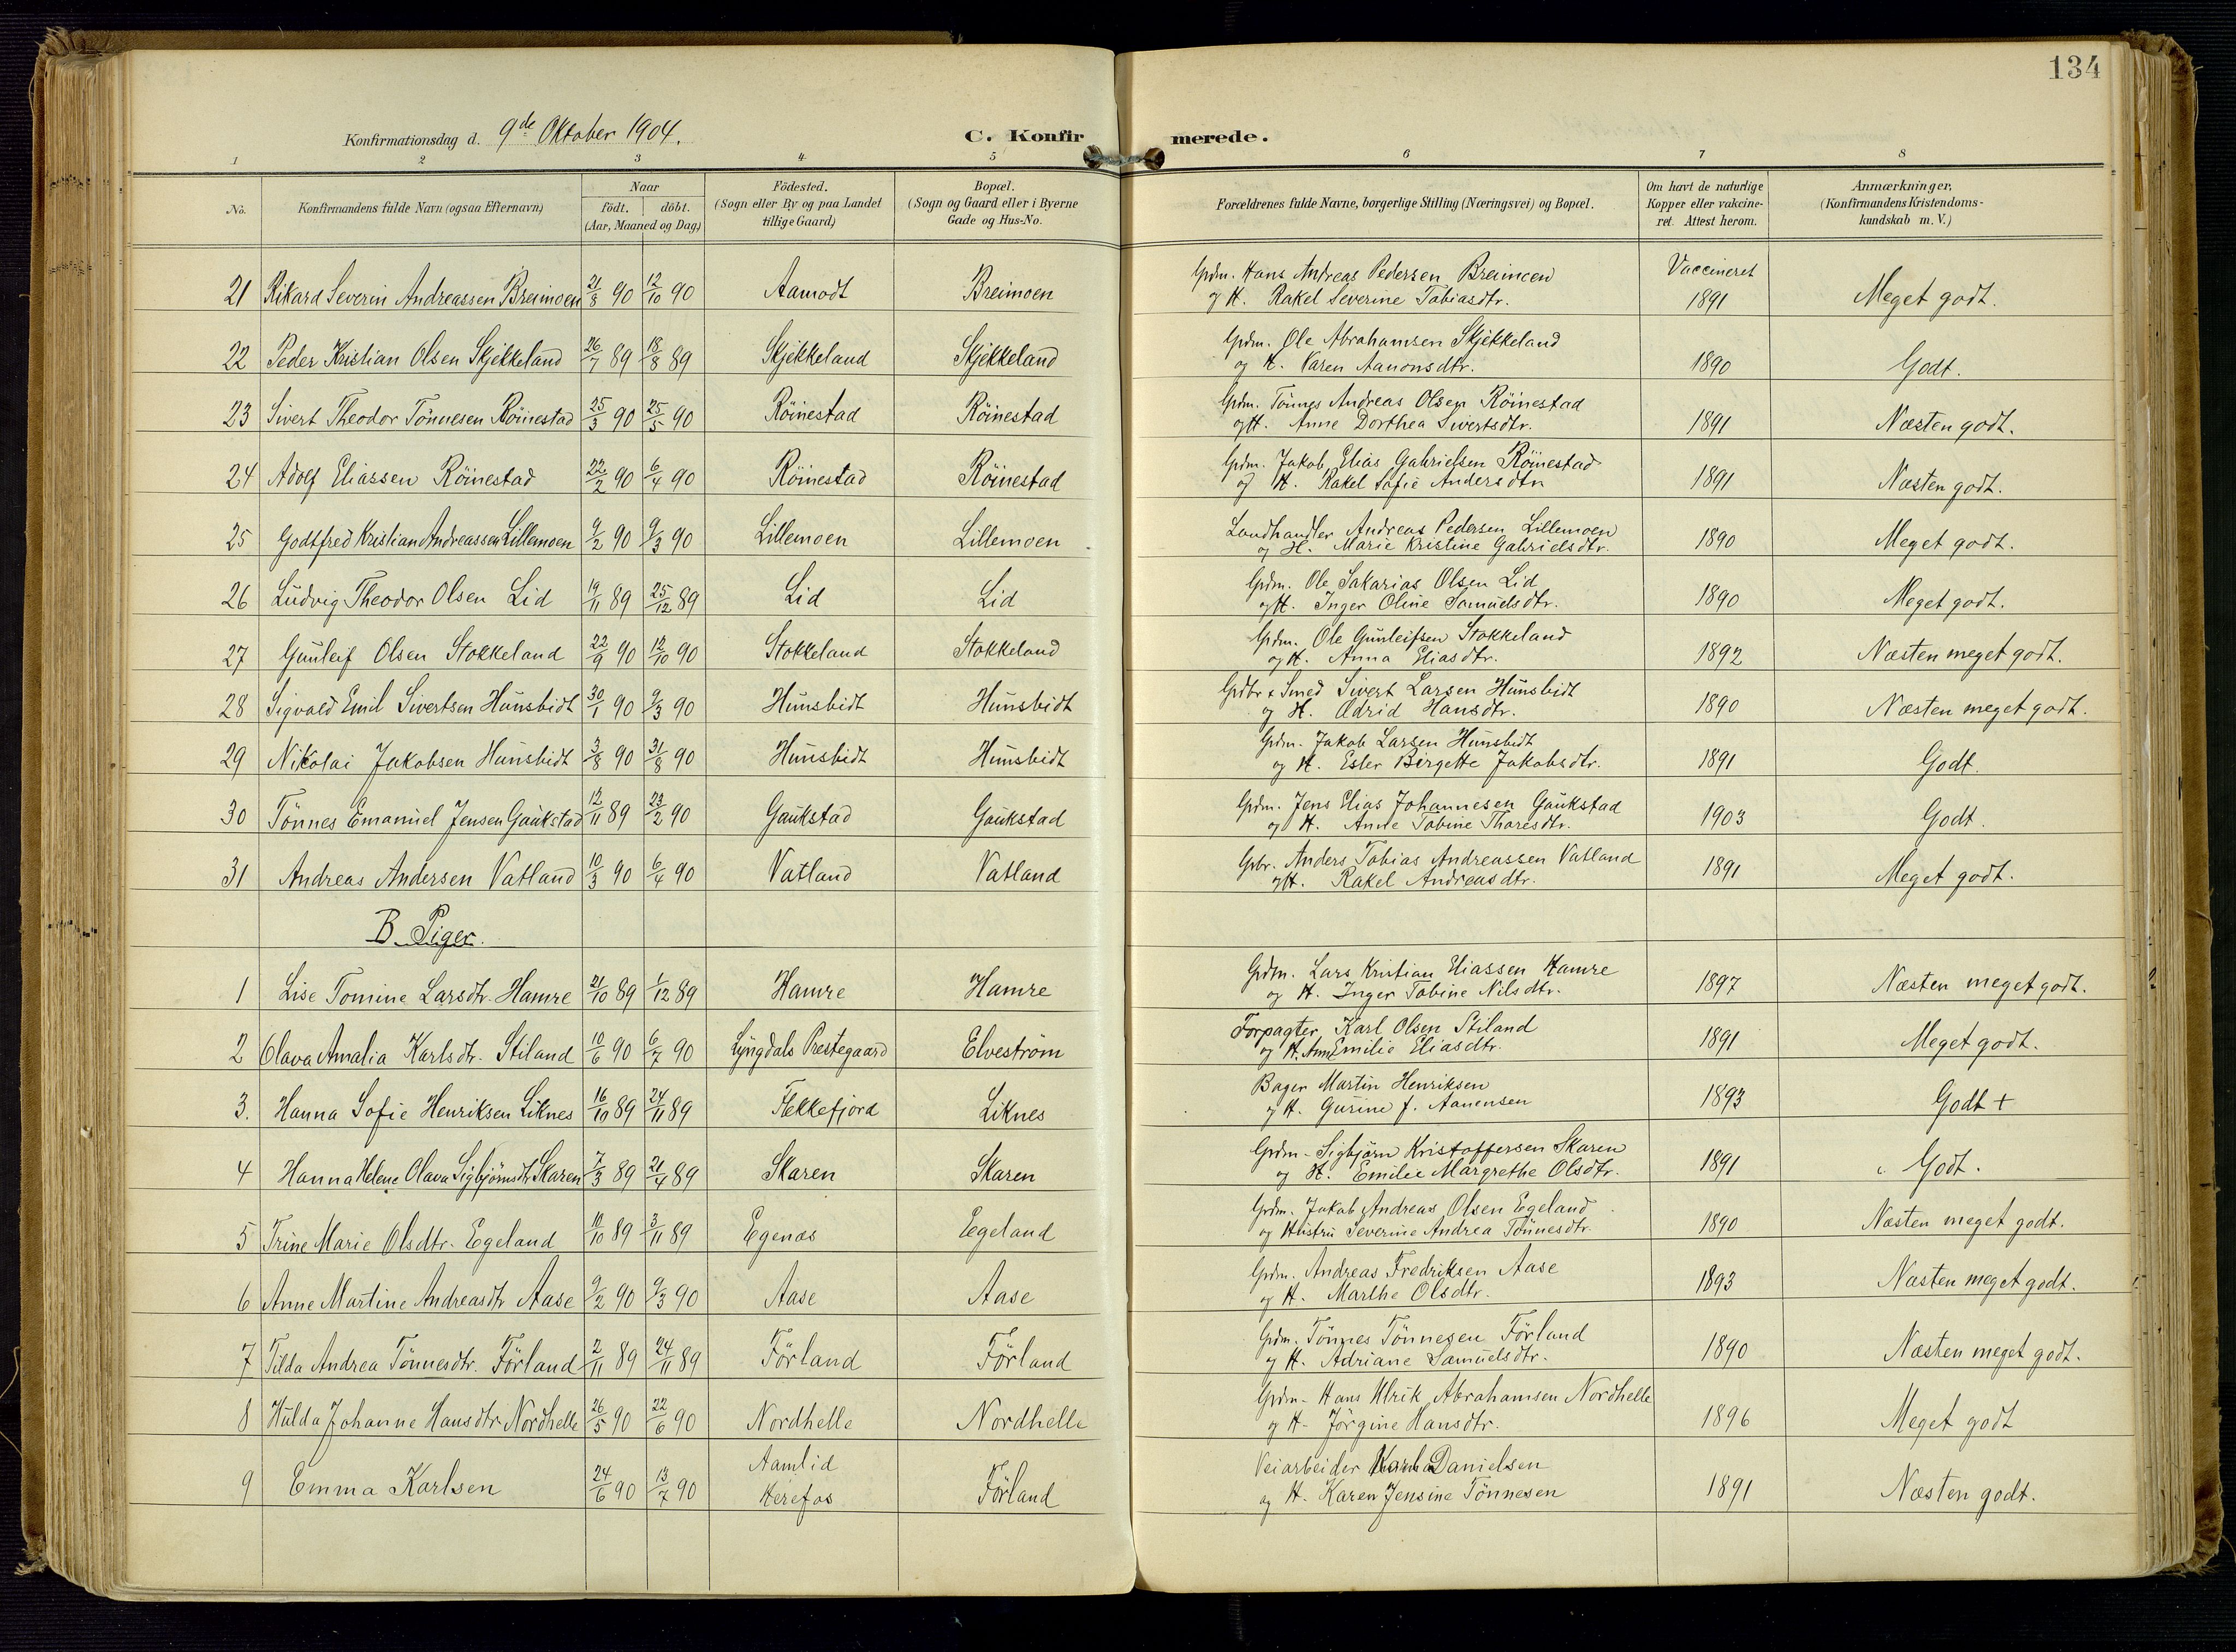 134
Konfirmationsdag d. 9de Oktober 1904.
C. Konfirmerede.
1 2 3 4 5 6 7 8
No. Konfirmandens fulde Navn (ogsaa Efternavn) Naar födt. döbt. (Aar, Maaned og Dag) Födested. (Sogn eller By og paa Landet tillige Gaard) Bopæl. (Sogn og Gaard eller i Byerne Gade og Hus-No. Forældrenes fulde Navne, borgerlige Stilling (Næringsvei) og Bopæl. Om havt de naturlige Kopper eller vakcineret. Attest herom. Anmærkninger, (Konfirmandens Kristendomskundskab m. V.)
21 Rikard Severin Andreassen Breimoen 21/8 90 12/10 90 Aamodt Breimoen Gdm. Hans Andreas Pedersen Breimoen Vaccineret
og H. Rakel Severine Tobiasdtr. 1891 Meget godt.
22 Peder Kristian Olsen Skjekkeland 26/7 89 18/8 89 Skjekkeland Skjekkeland Gdm. Ole Abrahamsen Skjekkeland
og H. Karen Aanonsdtr. 1890 Godt.
23 Sivert Theodor Tönnesen Röinestad 25/3 90 25/5 90 Röinestad Röinestad Gdm. Tönnes Andreas Olsen Röinestad
og H. Anne Dorthea Sivertsdtr. 1891 Næsten godt.
24 Adolf Eliassen Röinestad 22/2 90 6/4 90 Röinestad Röinestad Gdm. Jakob Elias Gabrielsen Röinestad
og H. Rakel Sofie Andersdtr 1891 Næsten godt.
25 Godtfred Kristian Andreassen Lillemoen 9/2 90 9/3 90 Lillemoen Lillemoen Landhandler Andreas Pedersen Lillemoen
og H. Marie Kristine Gabrielsdtr. 1890 Meget godt.
26 Ludvig Theodor Olsen Lid 19/11 89 25/12 89 Lid Lid Gdm. Ole Sakarias Olsen Lid
og H. Inger Oline Samuelsdtr. 1890 Meget godt.
27 Gunleif Olsen Stokkeland 22/9 90 12/10 90 Stokkeland Stokkeland Gdm. Ole Gunleifsen Stokkeland
og H. Anna Eliasdtr. 1892 Næsten meget godt.
28 Sigvald Emil Sivertsen Hunsbidt 30/1 90 9/3 90 Hunsbidt Hunsbidt Gdbr & Smed Sivert Larsen Hunsbidt
og H. Ædrid Hansdtr. 1890 Næsten meget godt.
29 Nikolai Jakobsen Hunsbidt 3/8 90 31/8 90 Hunsbidt Hunsbidt Gdm. Jakob Larsen Hunsbidt
og H. Ester Birgette Jakobsdtr. 1891 Godt.
30 Tönnes Emanuel Jensen Gaukstad 12/11 89 23/2 90 Gaukstad Gaukstad Gdm. Jens Elias Johannesen Gaukstad
og H. Anne Tobine Tharesdtr. 1903 Godt.
31 Andreas Andersen Vatland 10/3 90 6/4 90 Vatland Vatland Gbr. Anders Tobias Andreassen Vatland
og H. Rakel Andreasdtr. 1891 Meget godt.
B. Piger.
1 Lise Tomine Larsdtr. Hamre 21/10 89 1/12 89 Hamre Hamre Gdm. Lars Kristian Eliassen Hamre
og H. Inger Tobine Nilsdtr. 1897 Næsten meget godt.
2 Olava Amalia Karlsdtr. Stiland 10/6 90 6/7 90 Lyngdals Prestegaard Elveström Forpagter, Karl Olsen Stiland
og H. Ann Emilie Eliasdtr. 1891 Meget godt.
3. Hanna Sofie Henriksen Liknes 16/10 89 24/11 89 Flekkefjord Liknes Bager Martin Henriksen
og H. Gurine f. Aanensen 1893 Godt +
4 Hanna Helene Olava Sigbjörnsdtr Skaren 7/3 89 21/4 89 Skaren Skaren Gdm. Sigbjörn Kristoffersen Skaren
og H. Emilie Margrethe Olsdtr. 1891 Godt.
5 Trine Marie Olsdtr. Egeland 10/10 89 3/11 89 Egenæs Egeland Gdm. Jakob Andreas Olsen Egeland
og Hustru Severine Andrea Tönnesdtr. 1890 Næsten meget godt.
6 Anne Martine Andreasdtr Aase 9/2 90 9/3 90 Aase Aase Gdm. Andreas Fredriksen Aase
og H. Marthe Olsdtr. 1893 Næsten meget godt.
7 Tilda Andrea Tönnesdtr. Förland 2/11 89 24/11 89 Förland Förland Gdm. Tönnes Tönnesen Förland
og H. Adriane Samuelsdtr. 1890 Næsten meget godt.
8 Hulda Johanne Hansdtr Nordhelle 26/5 90 22/6 90 Nordhelle Nordhelle Gdm. Hans Ulrik Abrahamsen Nordhelle
og H. Jörgine Hansdtr. 1896 Meget godt
9 Emma Karlsen 24/6 90 13/7 90 Aamlid Herefos Förland Veiarbeider Karl Danielsen
og H. Karen Jensine Tönnesen 1891 Næsten godt.